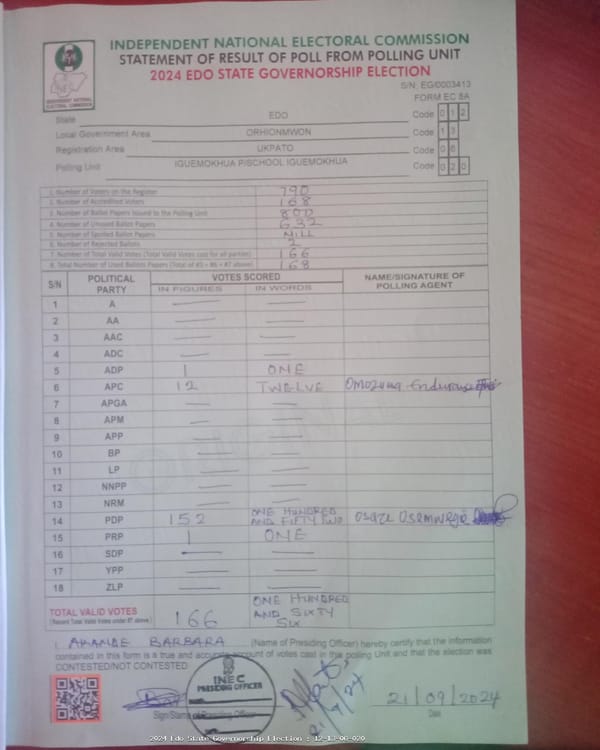 INDEPENDENT NATIONAL ELECTORAL COMMISSION
STATEMENT OF RESULT OF POLL FROM POLLING UNIT
2024 EDO STATE GOVERNORSHIP ELECTION
INEC
INDEPENDENT NATIONAL ELECTORAL COMMISSION
S/N: EG/0003413
FORM EC 8A
State EDO Code 0 1 2
Local Government Area ORHIONMWON Code 1 3
Registration Area UKPATO Code 0 6
Polling Unit IGUEMOKHUA PISCHOOL IGUEMOKHUA Code 0 2 0
1. Number of Voters on the Register 790
2. Number of Accredited Voters 168
3. Number of Ballot Papers Issued to the Polling Unit 800
4. Number of Unused Ballot Papers 632
5. Number of Spoiled Ballot Papers NILL
6. Number of Rejected Ballots 2
7. Number of Total Valid Votes (Total Valid Votes cast for all parties) 166
8. Total Number of Used Ballots Papers (Total of #5 + #6 + #7 above) 168
S/N POLITICAL PARTY VOTES SCORED NAME/SIGNATURE OF POLLING AGENT
IN FIGURES IN WORDS
1 A — —
2 AA — —
3 AAC — —
4 ADC — —
5 ADP 1 ONE
6 APC 12 TWELVE Omozuwa Endurance
7 APGA — —
8 APM — —
9 APP — —
10 BP — —
11 LP — —
12 NNPP — —
13 NRM — —
14 PDP 152 ONE HUNDRED AND FIFTY TWO Osaze Osemwegie
15 PRP 1 ONE
16 SDP — —
17 YPP — —
18 ZLP — —
TOTAL VALID VOTES 166 ONE HUNDRED AND SIXTY SIX
(Record Total Valid Votes under #7 above)
I, AKANDE BARBARA (Name of Presiding Officer) hereby certify that the information
contained in this form is a true and accurate account of votes cast in the polling Unit and that the election was
CONTESTED/NOT CONTESTED
INEC
PRESIDING OFFICER
21/9/24
21/09/2024
Sign Stamp of Presiding Officer
Date
2024 Edo State Governorship Election : 12-13-06-020